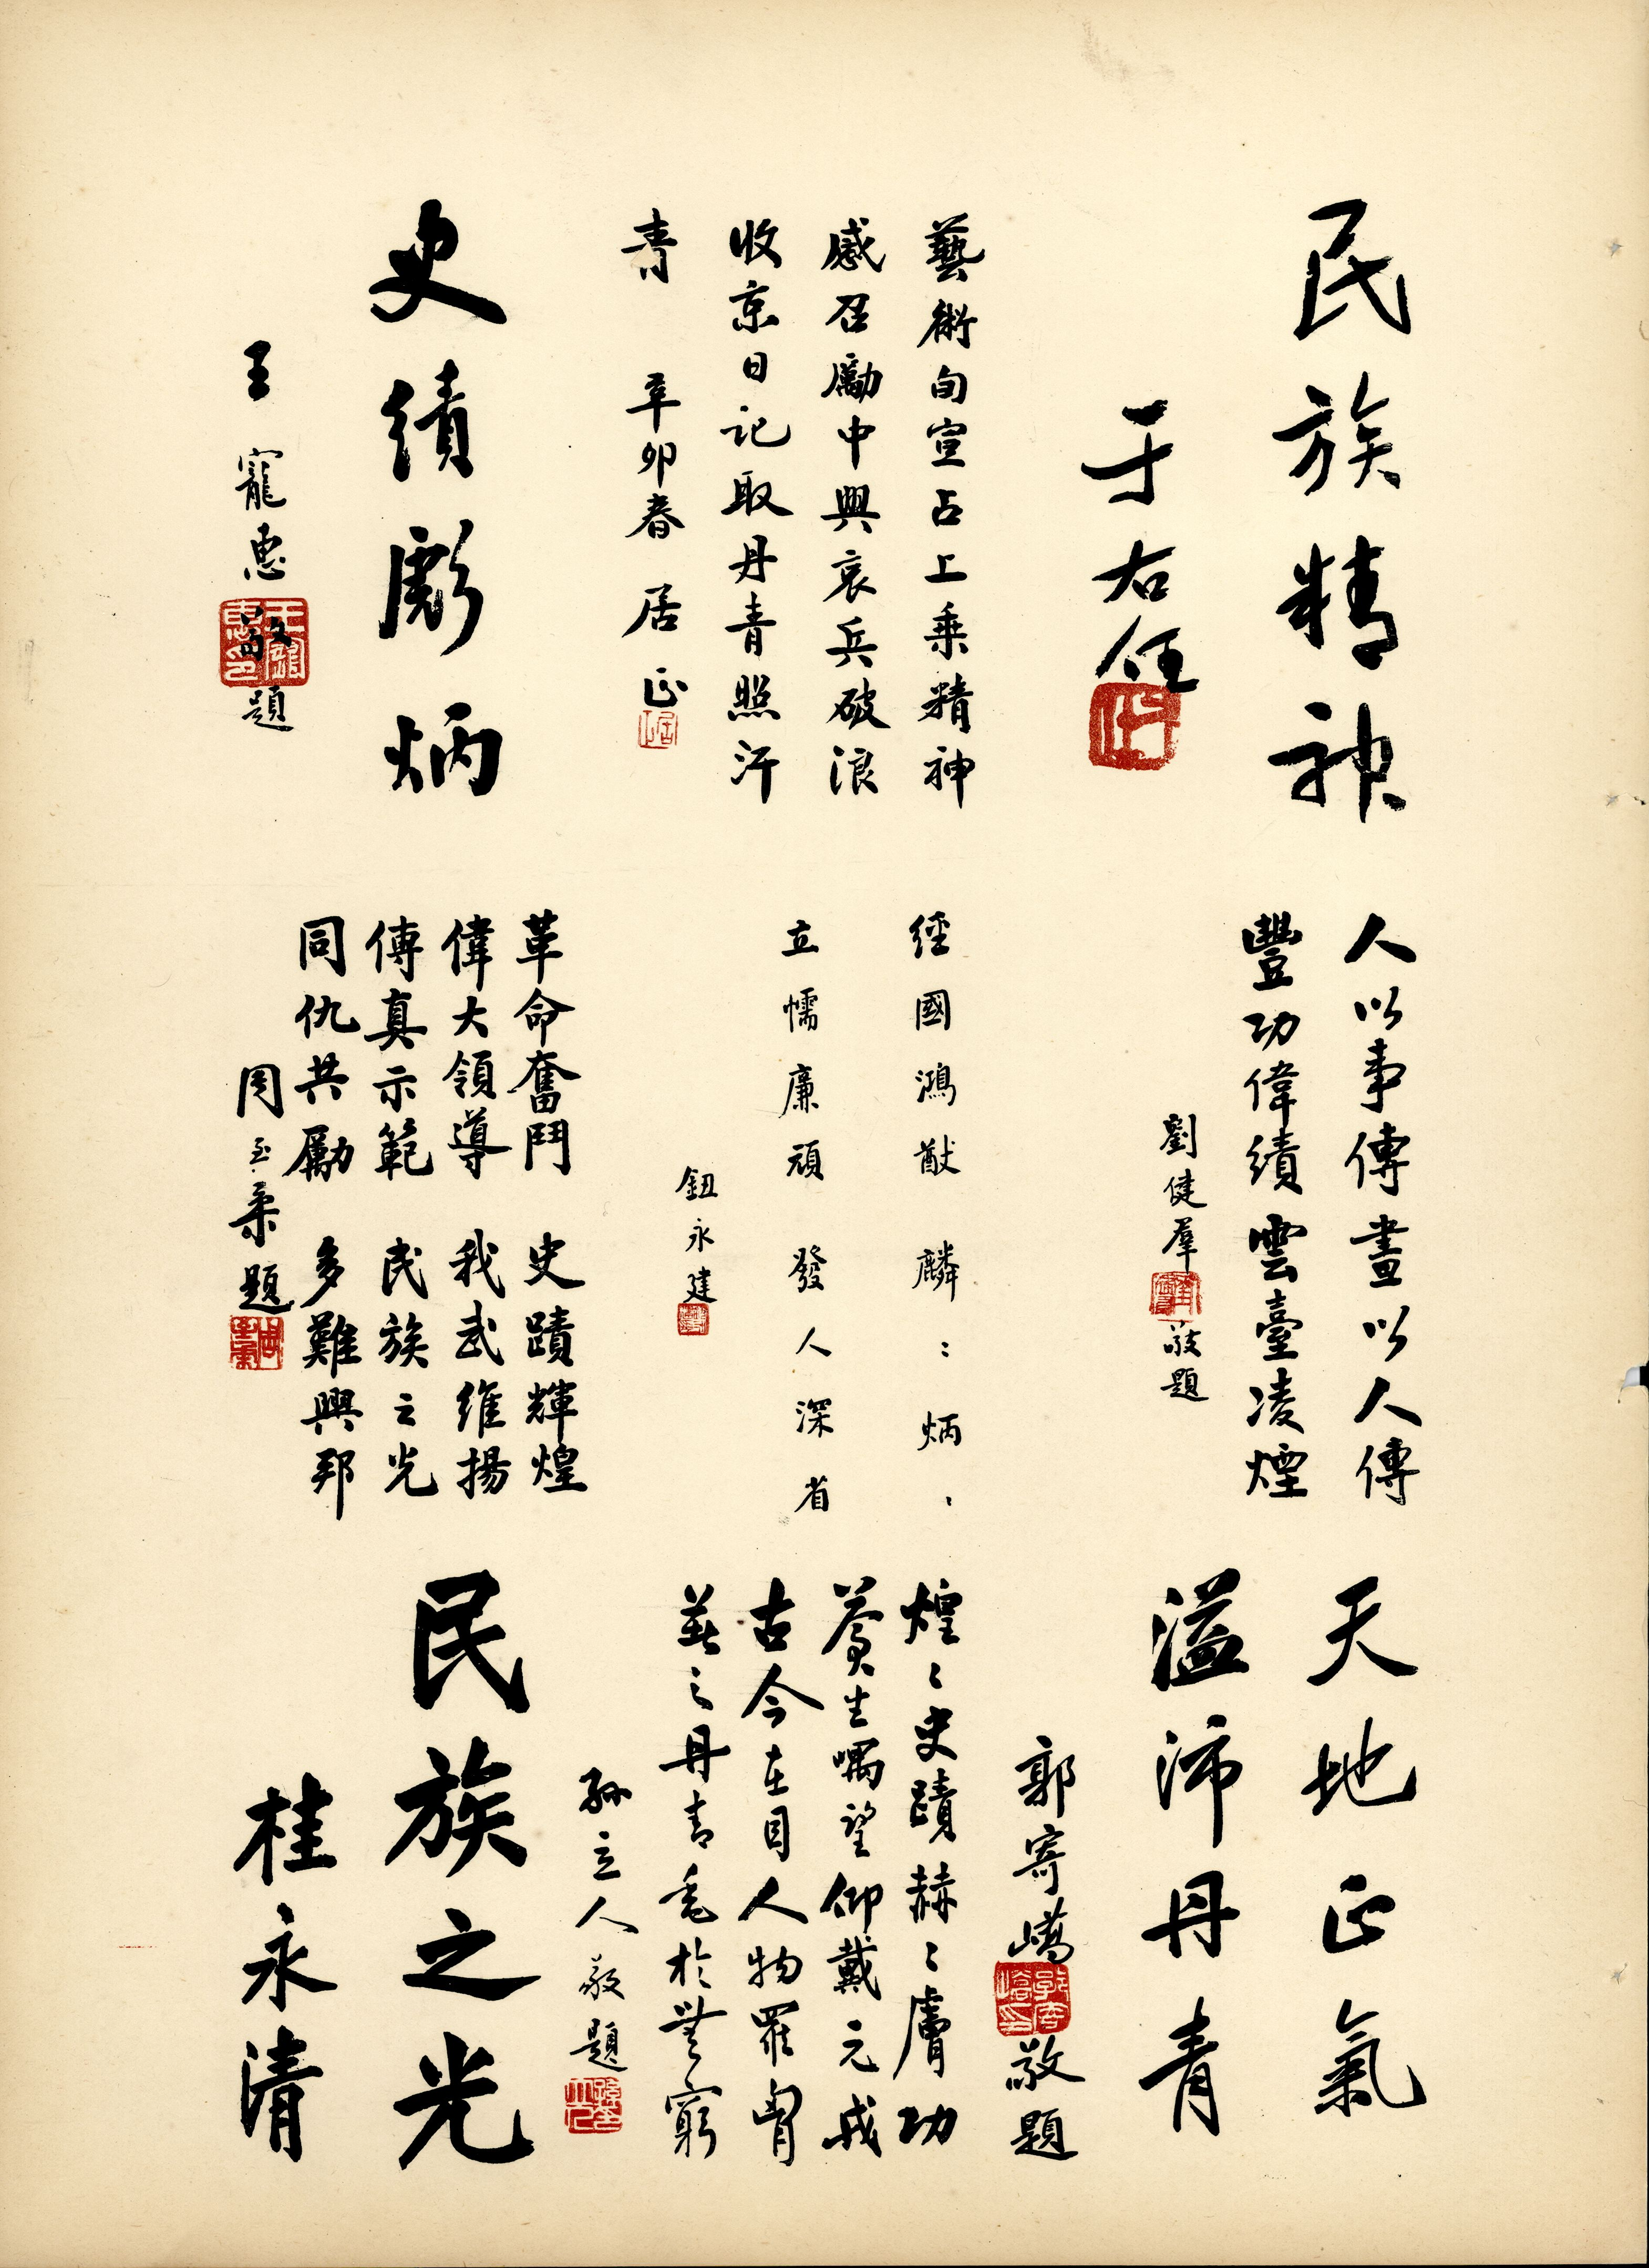 民族精神
于右任
藝術旬宣占上乘精神
感召勵中興哀兵破浪
收京日記取丹青照汗
青 辛卯春 居正
史績彪炳
王寵惠敬題
人以事傳畫以人傳
豐功偉績雲臺凌煙
劉健羣敬題
經國鴻猷 麟：炳、
立懦廉頑 發人深省
鈕永建
革命奮鬥 史蹟輝煌
偉大領導 我武維揚
傳真示範 民族之光
同仇共勵 多難興邦
周至柔題
天地正氣
溢沛丹青
郭寄嶠敬題
煌〻史蹟赫〻膚功
蒼生喁望仰戴元戎
古今在目人物羅胷
美之丹青垂於無窮
孫立人敬題
民族之光
桂永清